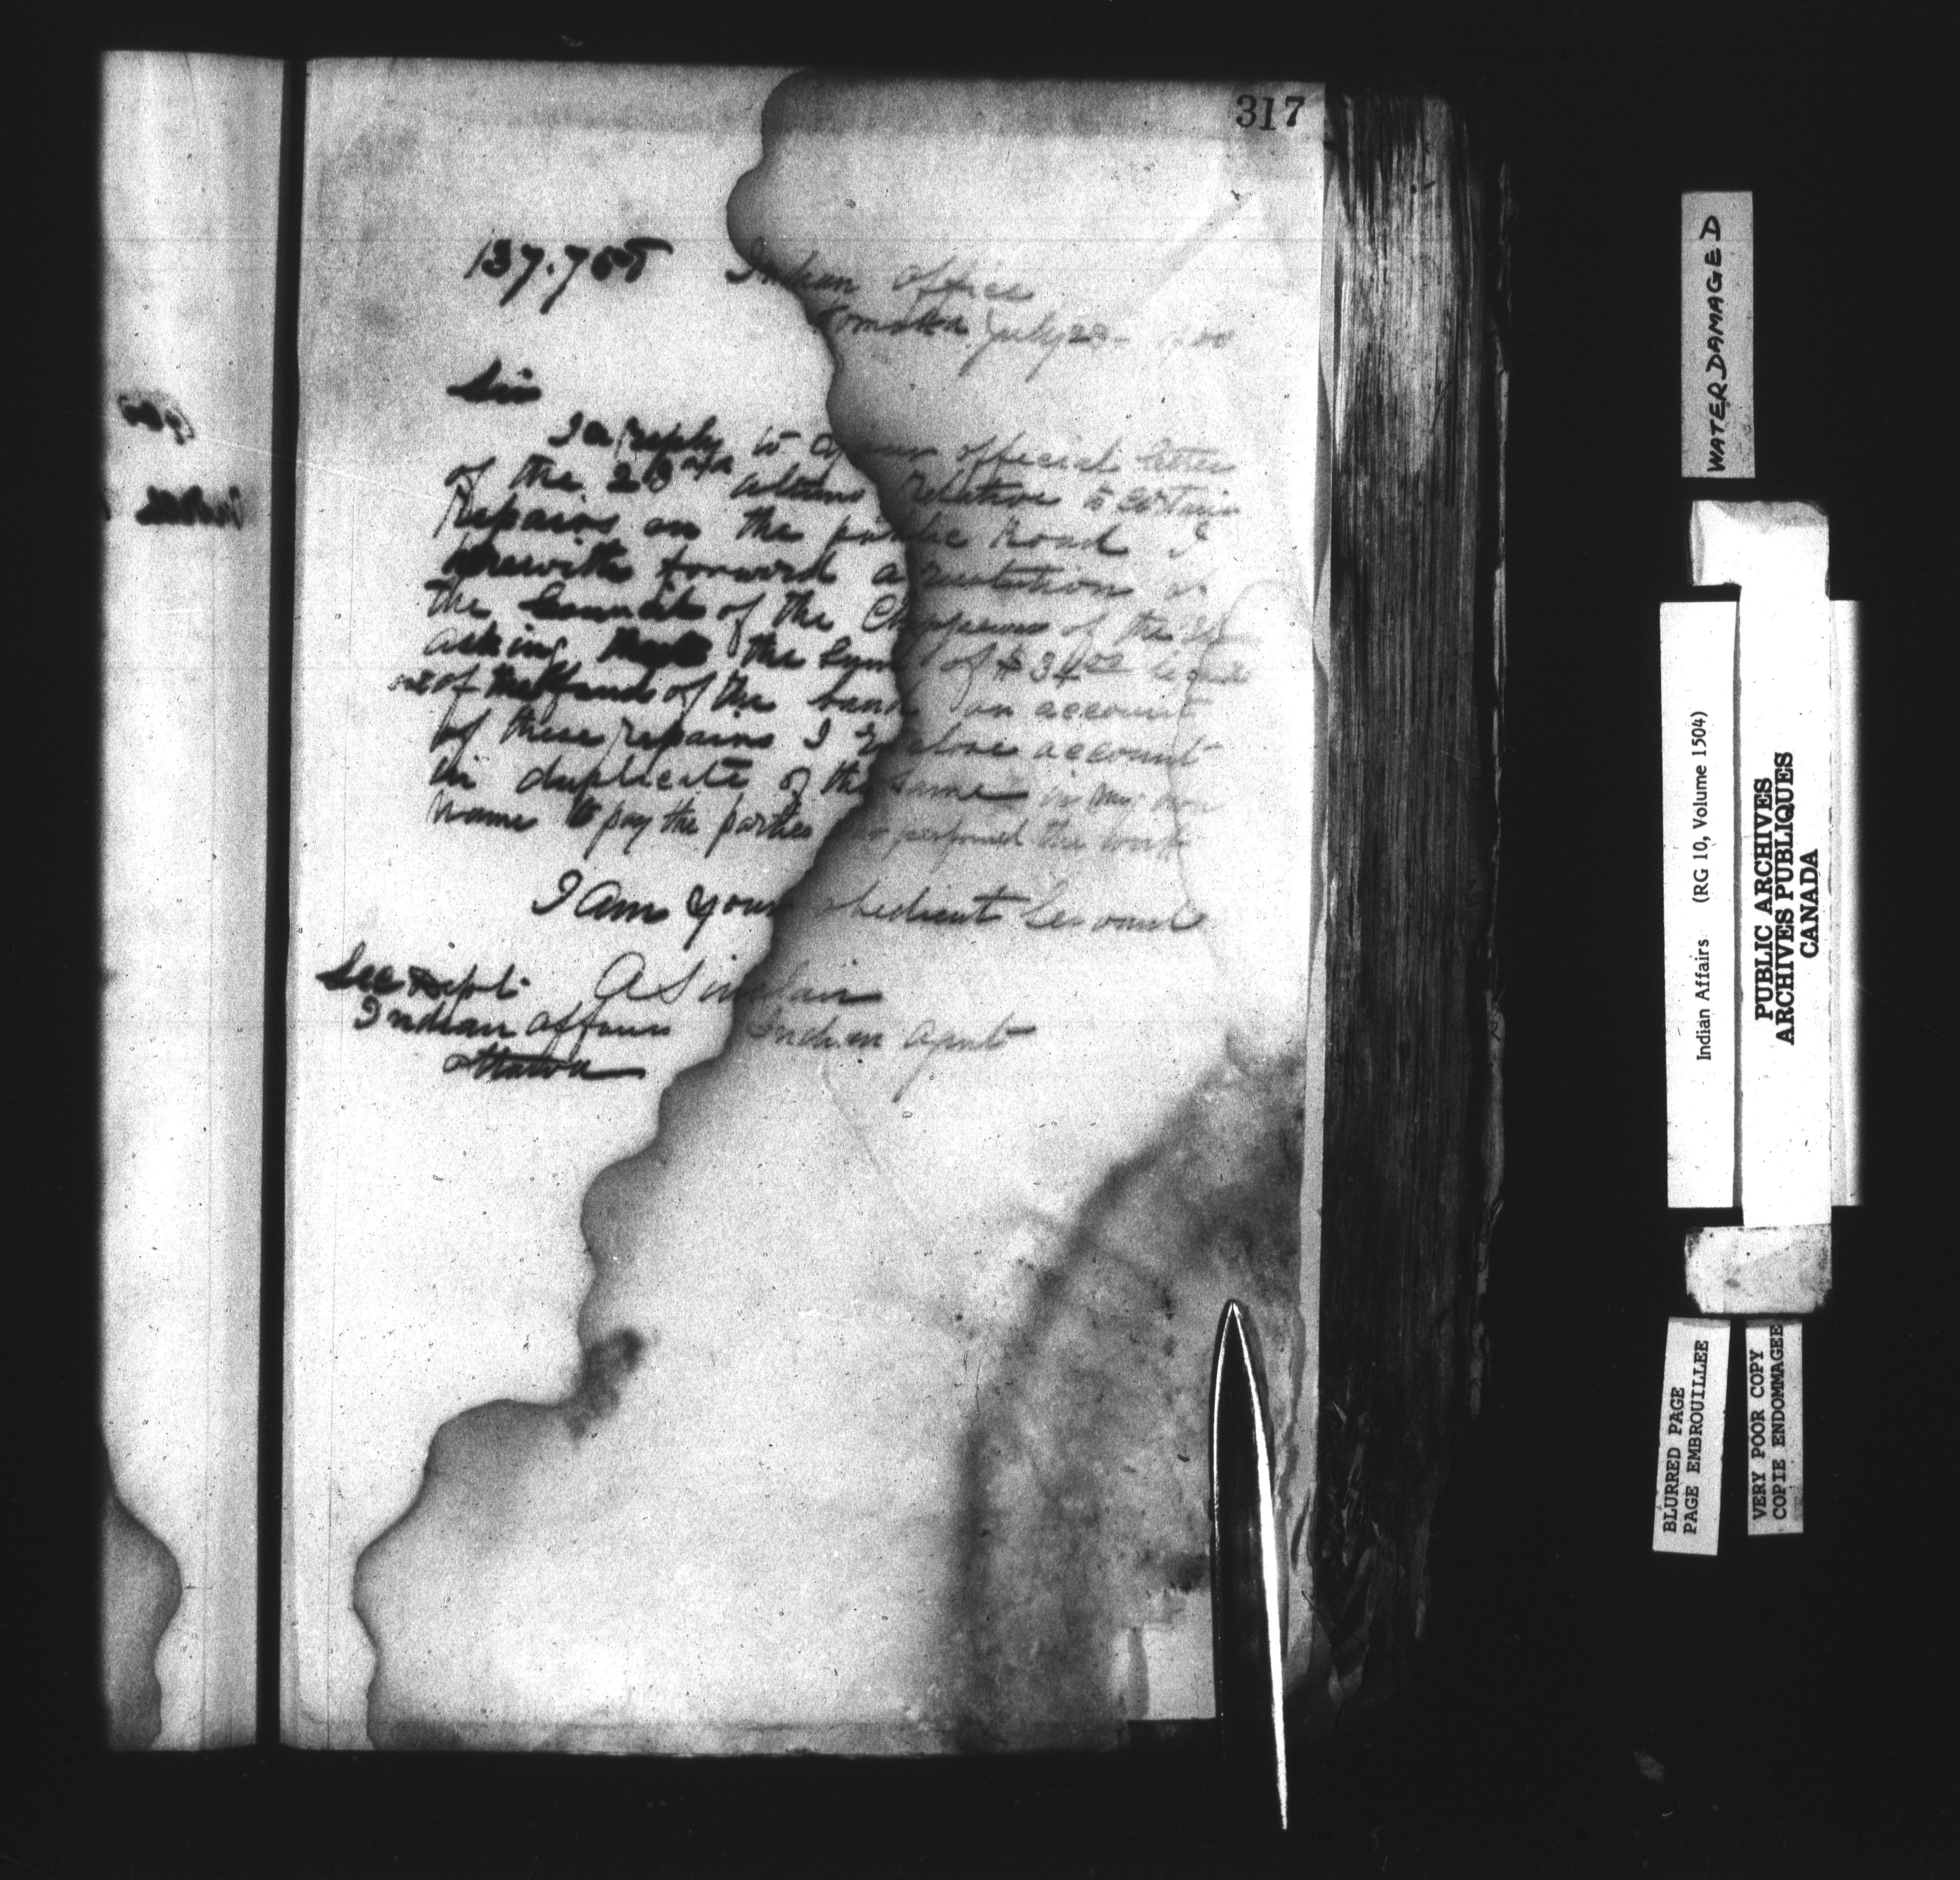 317
Indian Office
July 22
Sir
In reply to your official letter
of the 23 relative to certain
repairs on the public Road I
herewith forward a resolution of
the Council of the Chippewas of the
asking that the sum of $34.00 be paid
out of the funds of the band on account
of these repairs I Enclose account
in duplicate of the same in my own
name to pay the parties who performed the work
I Am your obedient Servant
A Sinclair
Indian agent
Sec Dept
Indian affairs
Ottawa
WATER DAMAGED
Indian Affairs (RG 10, Volume 1504)
PUBLIC ARCHIVES
ARCHIVES PUBLIQUES
CANADA
BLURRED PAGE
PAGE EMBROUILLEE
VERY POOR COPY
COPIE ENDOMMAGEE